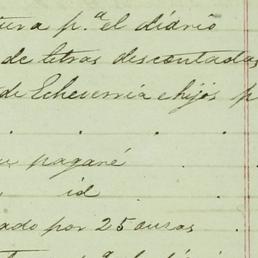 tura p.ª el diario
de letras descontadas
de Echeverria e hijos p
. . . .
pagaré . .
id .
ado por 25 onzas .